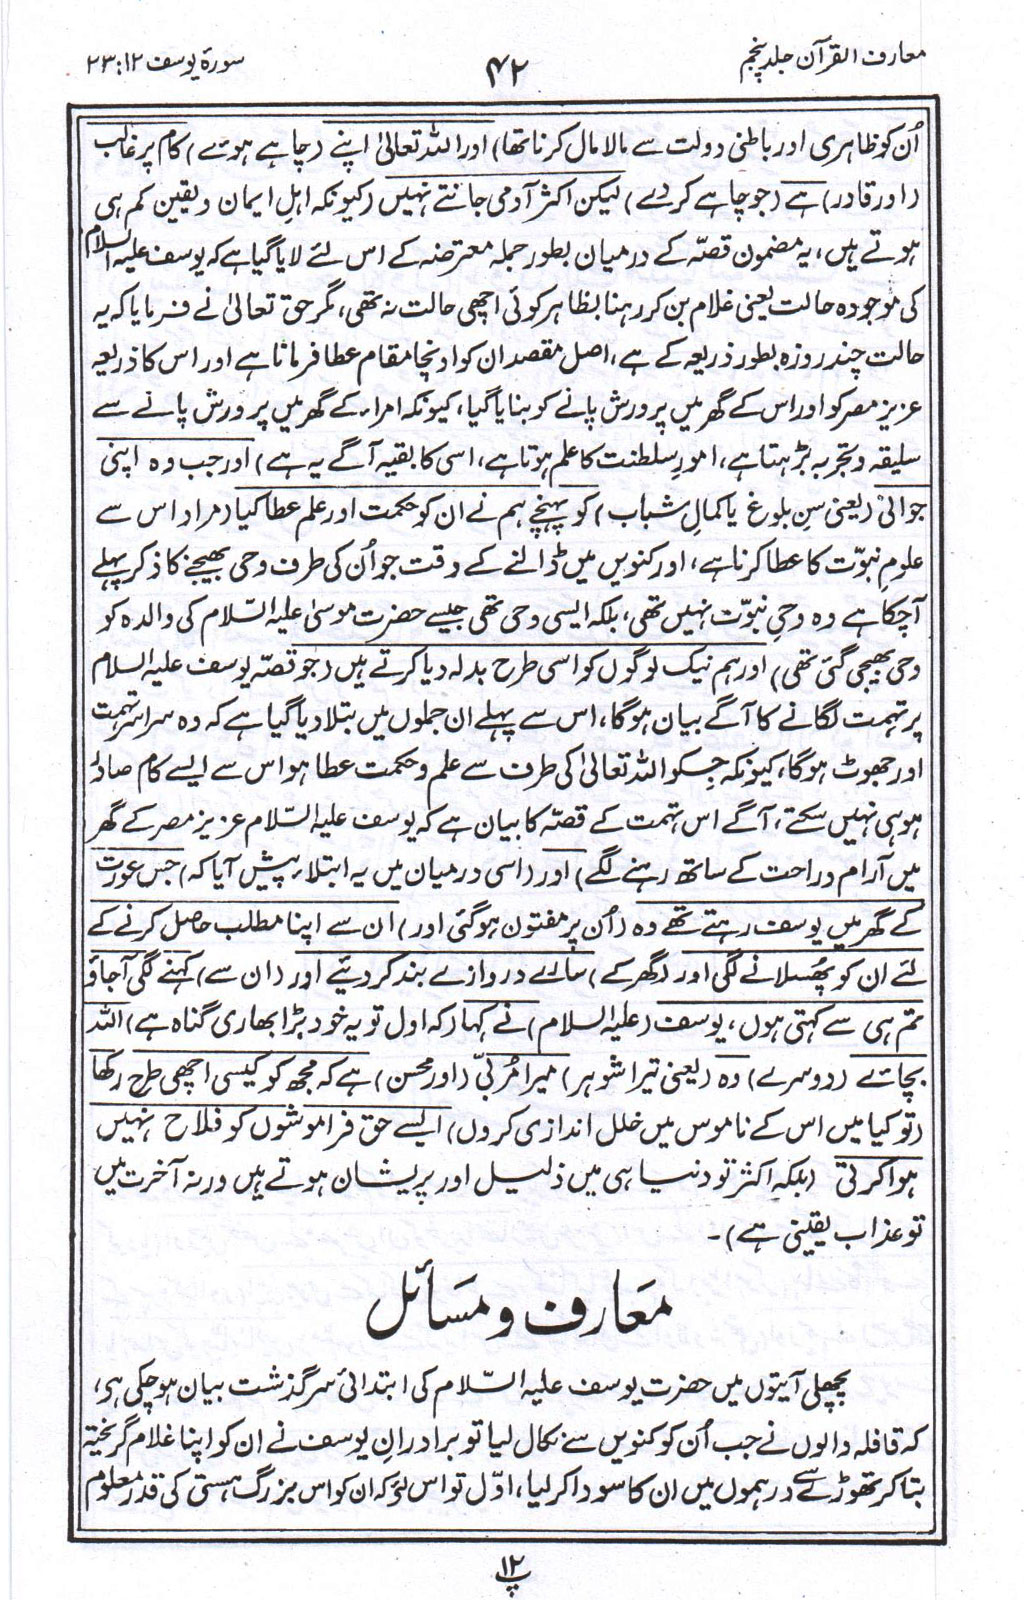 معارف القرآن جلد پنجم
۴۲
سورۂ یوسف ۱۲ : ۲۳
اُن کو ظاہری اور باطنی دولت سے مالامال کرنا تھا) اور اللہ تعالیٰ اپنے (چاہے ہوئے) کام پر غالب
(اور قادر) ہے (جو چاہے کر دے) لیکن اکثر آدمی جانتے نہیں (کیونکہ اہلِ ایمان و یقین کم ہی
ہوتے ہیں، یہ مضمون قصّہ کے درمیان بطور جملہ معترضہ کے اس لئے لایا گیا ہے کہ یوسف علیہ السلام
کی موجودہ حالت یعنی غلام بن کر رہنا بظاہر کوئی اچھی حالت نہ تھی، مگر حق تعالیٰ نے فرمایا کہ یہ
حالت چند روزہ بطور ذریعہ کے ہے، اصل مقصد ان کو اونچا مقام عطا فرمانا ہے اور اس کا ذریعہ
عزیز مصر کو اور اس کے گھر میں پرورش پانے کو بنایا گیا، کیونکہ امراء کے گھر میں پرورش پانے سے
سلیقہ و تجربہ بڑھتا ہے، امورِ سلطنت کا علم ہوتا ہے، اسی کا بقیہ آگے یہ ہے) اور جب وہ اپنی
جوانی (یعنی سنِ بلوغ یا کمالِ شباب) کو پہنچے ہم نے ان کو حکمت اور علم عطا کیا (مراد اس سے
علومِ نبوّت کا عطا کرنا ہے، اور کنویں میں ڈالنے کے وقت جو اُن کی طرف وحی بھیجنے کا ذکر پہلے
آچکا ہے وہ وحیِ نبوّت نہیں تھی، بلکہ ایسی وحی تھی جیسے حضرت موسیٰ علیہ السّلام کی والدہ کو
وحی بھیجی گئی تھی) اور ہم نیک لوگوں کو اسی طرح بدلہ دیا کرتے ہیں (جو قصّہ یوسف علیہ السلام
پر تہمت لگانے کا آگے بیان ہوگا، اس سے پہلے ان جملوں میں بتلا دیا گیا ہے کہ وہ سراسر تہمت
اور جھوٹ ہوگا، کیونکہ جسکو اللہ تعالیٰ کی طرف سے علم و حکمت عطا ہو اس سے ایسے کام صادر
ہو ہی نہیں سکتے، آگے اس تہمت کے قصّہ کا بیان ہے کہ یوسف علیہ السّلام عزیز مصر کے گھر
میں آرام و راحت کے ساتھ رہنے لگے) اور (اسی درمیان میں یہ ابتلاء پیش آیا کہ) جس عورت
کے گھر میں یوسف رہتے تھے وہ (اُن پر مفتون ہوگئی اور) ان سے اپنا مطلب حاصل کرنے کے
لئے ان کو پھُسلانے لگی اور (گھر کے) سارے دروازے بند کر دیئے اور (ان سے) کہنے لگی آجاؤ
تم ہی سے کہتی ہوں، یوسف (علیہ السلام) نے کہا (کہ اول تو یہ خود بڑا بھاری گناہ ہے) اللہ
بچائے (دوسرے) وہ (یعنی تیرا شوہر) میرا مُربّی (اور محسن) ہے کہ مجھ کو کیسی اچھی طرح رکھا
(تو کیا میں اس کے ناموس میں خلل اندازی کروں) ایسے حق فراموشوں کو فلاح نہیں
ہوا کرتی (بلکہ اکثر تو دنیا ہی میں ذلیل اور پریشان ہوتے ہیں ورنہ آخرت میں
تو عذاب یقینی ہے)۔
معارف و مسائل
پچھلی آیتوں میں حضرت یوسف علیہ السّلام کی ابتدائی سرگذشت بیان ہو چکی ہی،
کہ قافلہ والوں نے جب اُن کو کنویں سے نکال لیا تو برادرانِ یوسف نے ان کو اپنا غلام گریختہ
بتا کر تھوڑے سے درہموں میں ان کا سودا کر لیا، اوّل تو اس لئے کہ ان کو اس بزرگ ہستی کی قدر معلوم
۱۲
پ